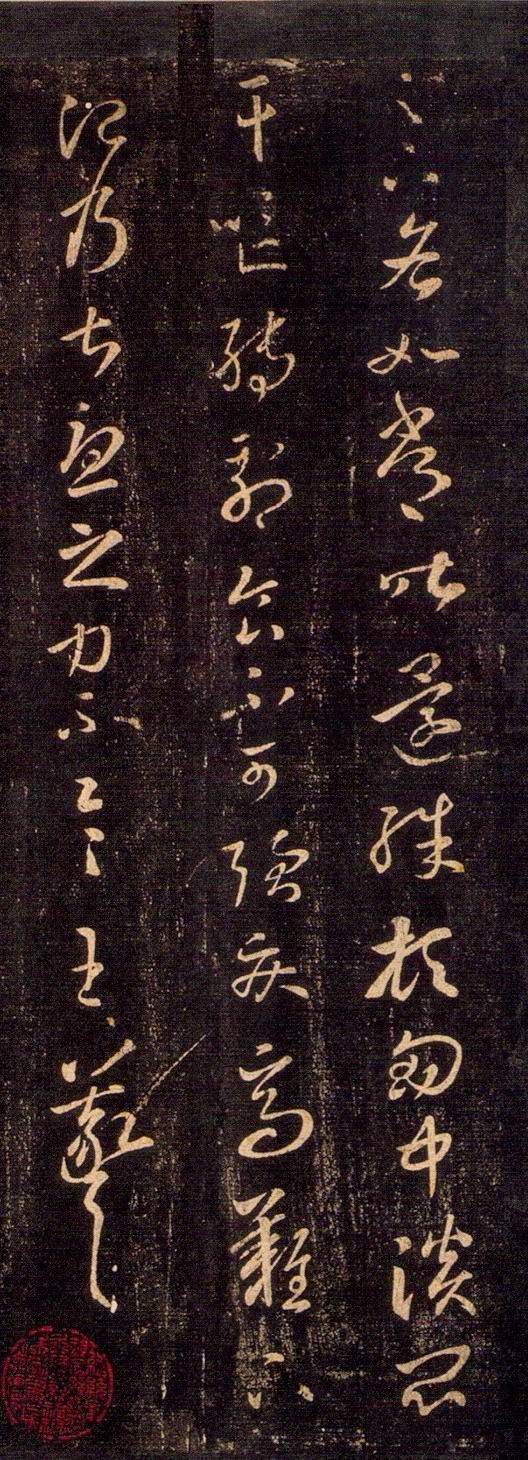 足下各如常昨還殊頓匈中淡悶
干嘔轉劇食不可強疾高難下
治乃甚憂之力不一一王羲之